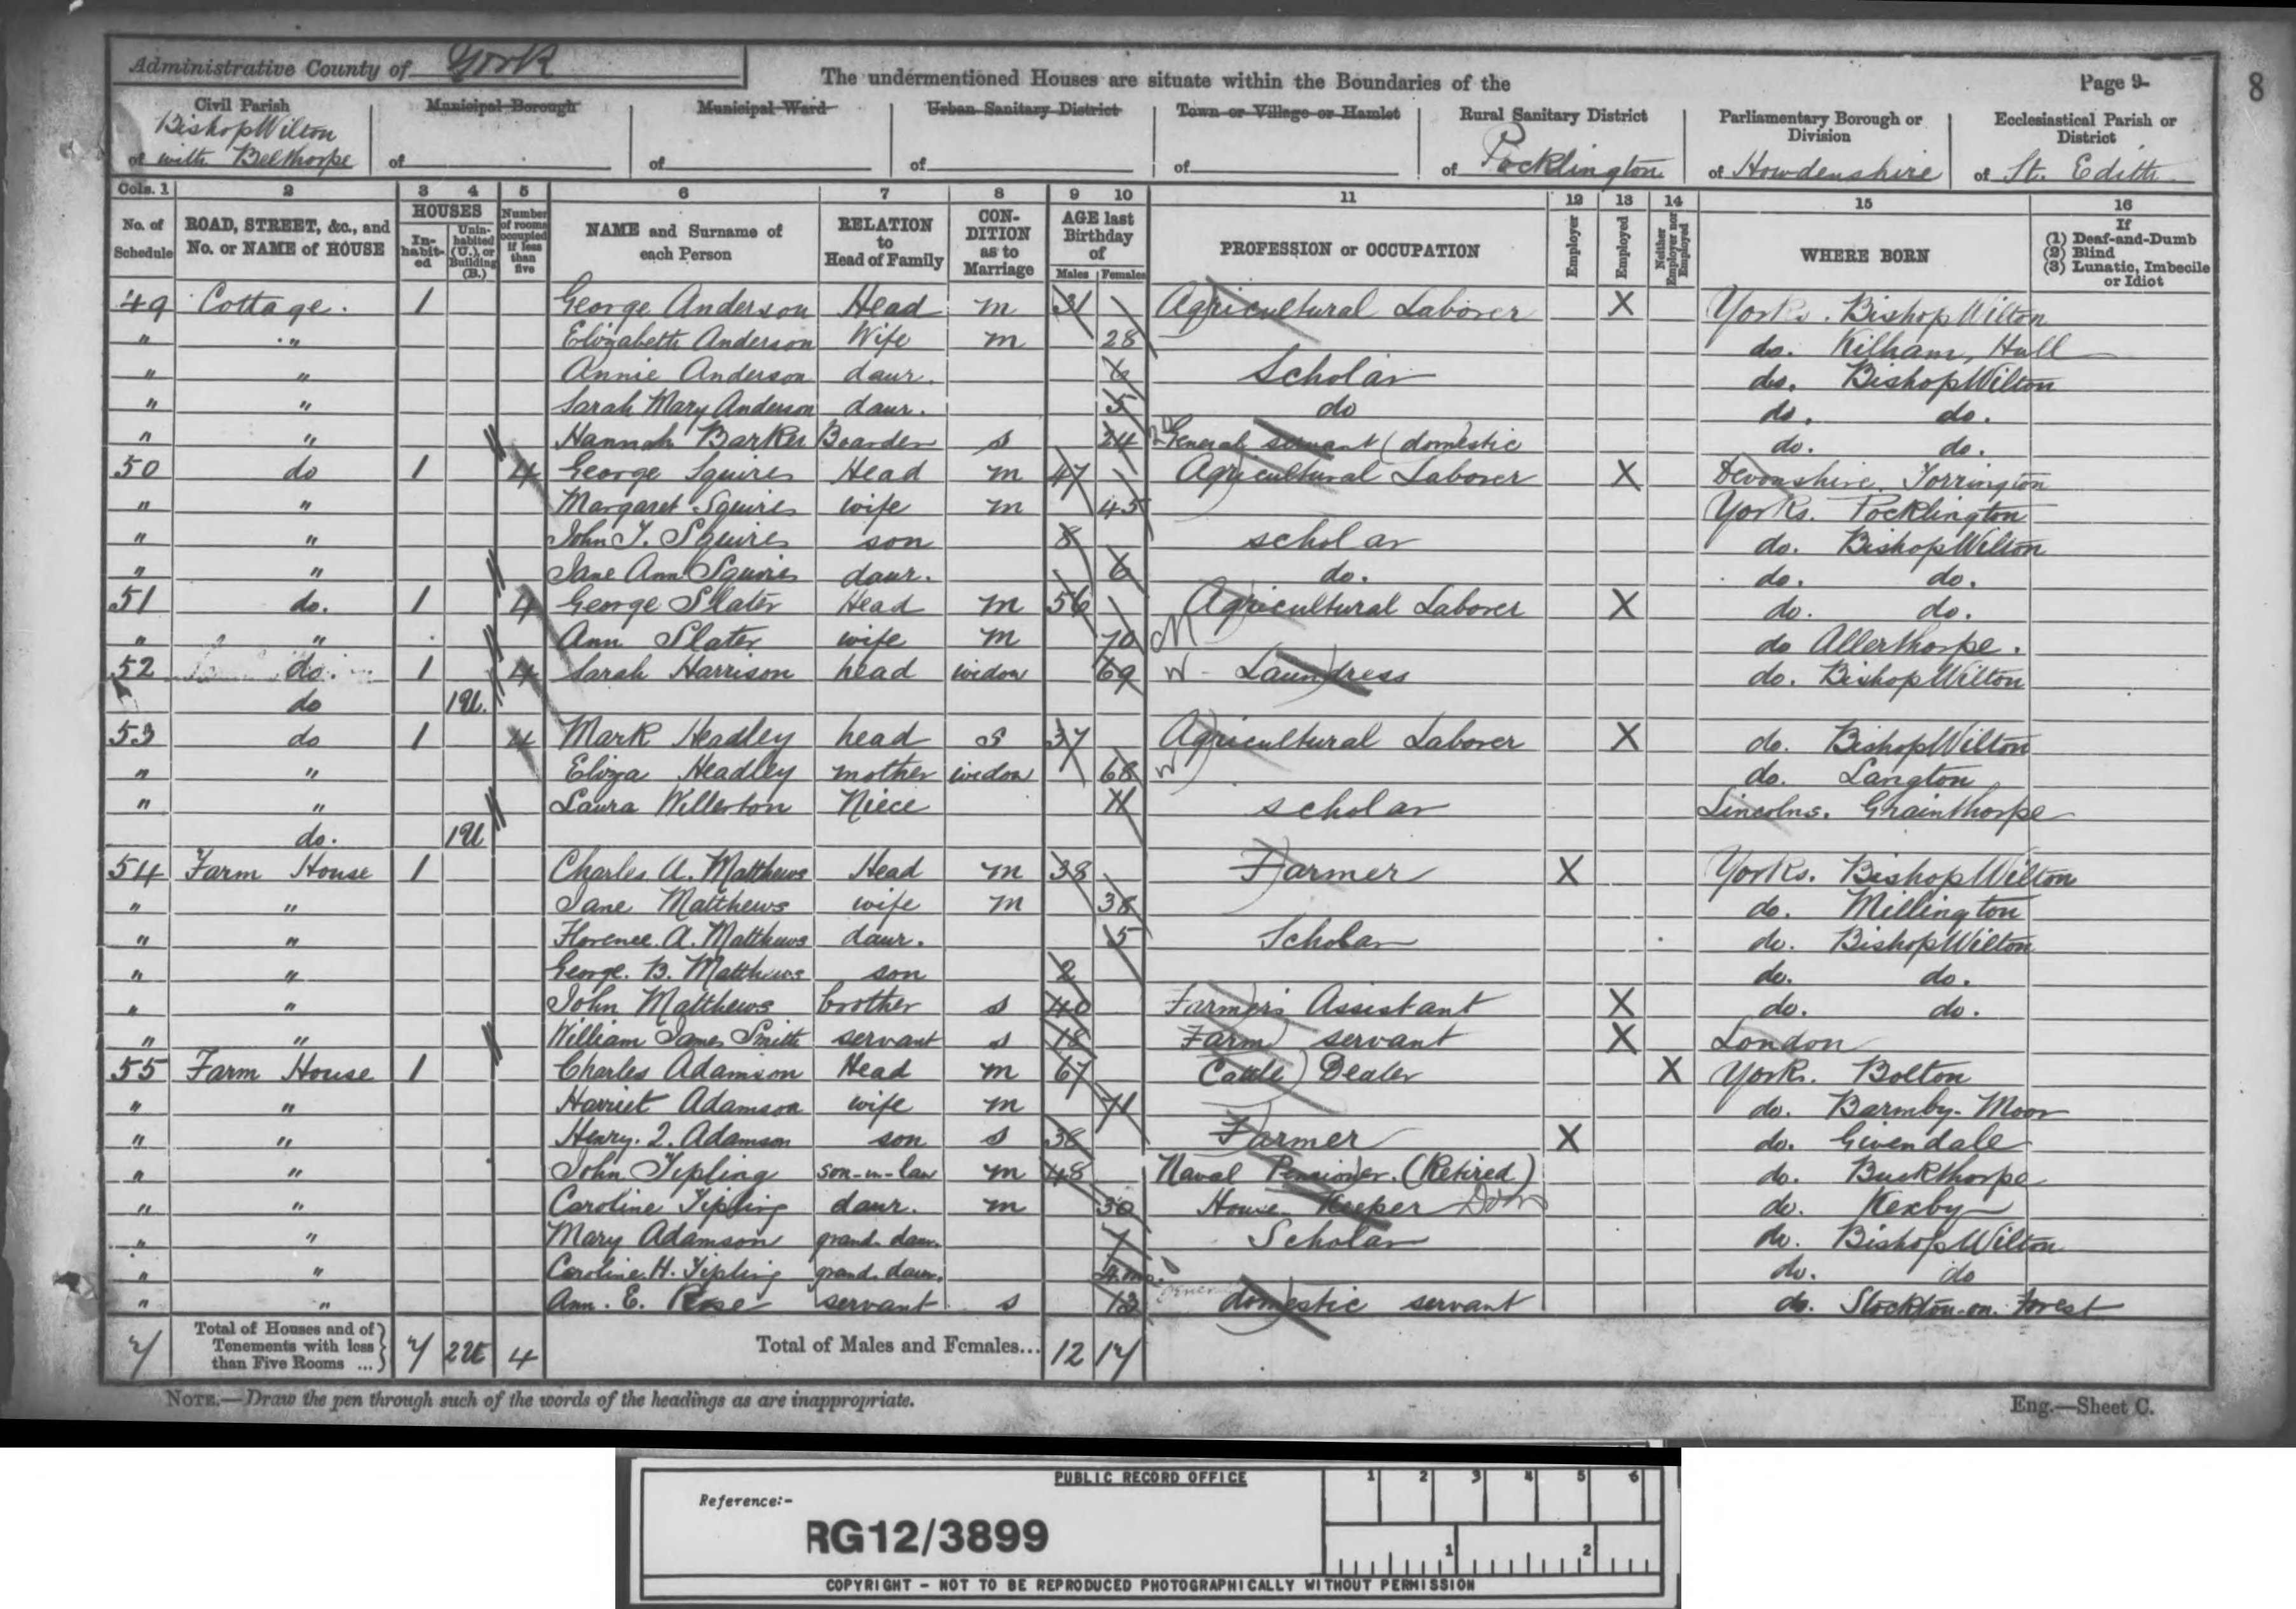 Administrative County of York
The undermentioned Houses are situate within the Boundaries of the
Page 9
8
Civil Parish of Bishop Wilton with Belthorpe
Municipal Borough of
Municipal Ward of
Urban Sanitary District of
Town or Village or Hamlet of
Rural Sanitary District of Pocklington
Parliamentary Borough or Division of Howdenshire
Ecclesiastical Parish or District of St. Edith
Cols. 1 2 3 4 5 6 7 8 9 10 11 12 13 14 15 16
No. of Schedule
ROAD, STREET, &c., and No. or NAME of HOUSE
HOUSES
Inhabited
Uninhabited (U.), or Building (B.)
Number of rooms occupied if less than five
NAME and Surname of each Person
RELATION to Head of Family
CONDITION as to Marriage
AGE last Birthday of
Males Females
PROFESSION or OCCUPATION
Employer
Employed
Neither Employer nor Employed
WHERE BORN
If
(1) Deaf-and-Dumb
(2) Blind
(3) Lunatic, Imbecile or Idiot
49 Cottage. 1 George Anderson Head m 31 Agricultural Laborer X Yorks. Bishop Wilton
" " Elizabeth Anderson Wife m 28 do. Kilham, Hull
" " Annie Anderson daur. 6 Scholar do. Bishop Wilton
" " Sarah Mary Anderson daur. 5 do do. do.
" " Hannah Barker Boarder s 24 General servant (domestic do. do.
50 do 1 4 George Squires Head m 47 Agricultural Laborer X Devonshire. Torrington
" " Margaret Squires wife m 45 Yorks. Pocklington
" " John T. Squires son 8 scholar do. Bishop Wilton
" " Jane Ann Squires daur. 6 do. do. do.
51 do. 1 4 George Slater Head m 56 Agricultural Laborer X do. do.
" " Ann Slater wife m 70 do Allerthorpe.
52 do. 1 4 Sarah Harrison head widow 69 W - Laundress do. Bishop Wilton
do 1U.
53 do 1 4 Mark Headley head S 37 Agricultural Laborer X do. Bishop Wilton
" " Eliza Headley mother widow 68 W do. Langton
" " Laura Willerton Niece 11 scholar Lincolns. Grainthorpe
do. 1U
54 Farm House 1 Charles A. Matthews Head m 38 Farmer X Yorks. Bishop Wilton
" " Jane Matthews wife m 38 do. Millington
" " Florence. A. Matthews daur. 5 Scholar do. Bishop Wilton
" " George. B. Matthews son 2 do. do.
" " John Matthews brother s 40 Farmer's Assistant X do. do.
" " William James Smith servant s 18 Farm servant X London
55 Farm House 1 Charles Adamson Head m 67 Cattle Dealer X Yorks. Bolton
" " Harriet Adamson wife m 71 do. Barmby-Moor
" " Henry. 2. Adamson son s 38 Farmer X do. Givendale
" " John Tipling son-in-law m 48 Naval Pensioner. (Retired) do. Buckthorpe
" " Caroline Tipling daur. m 30 House Keeper Dom do. Kexby
" " Mary Adamson grand. daur. 7 Scholar do. Bishop Wilton
" " Caroline. H. Tipling grand. daur. 4 mo. do. do
" " Ann. E. Rose servant s 13 General domestic servant do. Stockton-on. Forest
7 Total of Houses and of Tenements with less than Five Rooms ... 7 2U 4 Total of Males and Females... 12 17
NOTE.—Draw the pen through such of the words of the headings as are inappropriate.
Eng.—Sheet C.
PUBLIC RECORD OFFICE
1 2 3 4 5 6
Reference:-
RG12/3899
1 2
COPYRIGHT - NOT TO BE REPRODUCED PHOTOGRAPHICALLY WITHOUT PERMISSION